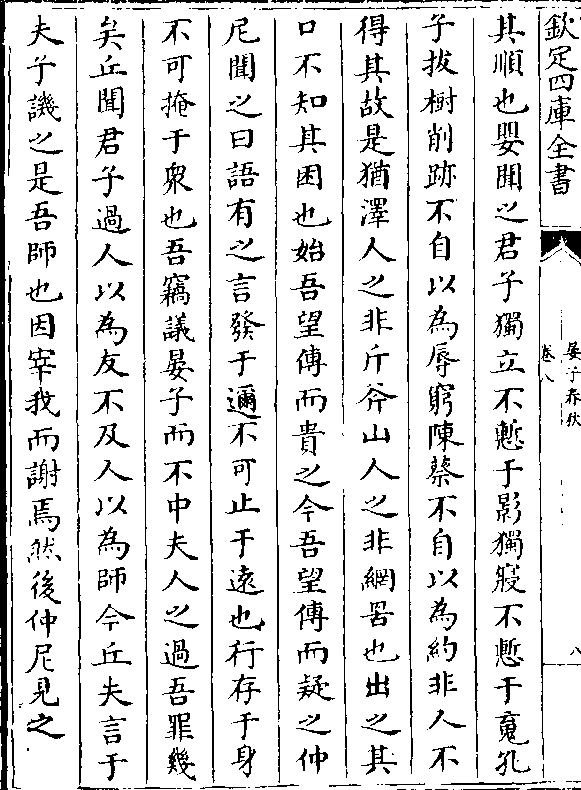 欽定四庫全書
晏子春秋
卷八
八
其順也嬰聞之君子獨立不慙于影獨寢不慙于䰟孔
子拔樹削跡不自以為辱窮陳蔡不自以為約非人不
得其故是猶澤人之非斤斧山人之非網罟也出之其
口不知其困也始吾望傳而貴之今吾望傳而疑之仲
尼聞之曰語有之言發于邇不可止于遠也行存于身
不可掩于衆也吾竊議晏子而不中夫人之過吾罪幾
矣丘聞君子過人以為友不及人以為師今丘失言于
夫子譏之是吾師也因宰我而謝焉然後仲尼見之